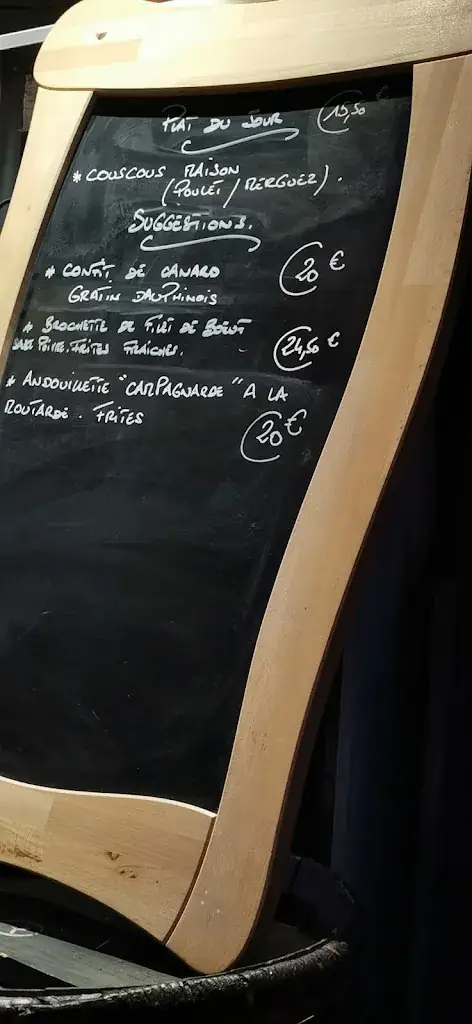 PLAT DU JOUR 15,50 €
* COUSCOUS MAISON
(POULET / MERGUEZ).
SUGGESTIONS.
* CONFIT DE CANARD 20 €
GRATIN DAUPHINOIS
* BROCHETTE DE FILET DE BOEUF
POIVRE. FRITES FRAICHES. 24,50 €
* ANDOUILLETTE "CAMPAGNARDE" A LA
MOUTARDE. FRITES 20 €